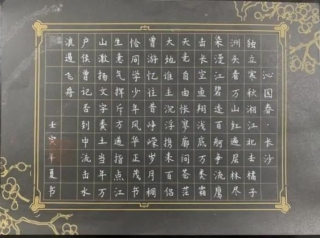 沁园春·长沙
独立寒秋湘江北去橘子
洲头看万山红遍层林尽
染漫江碧透百舸争流鹰
击长空鱼翔浅底万类霜
天竞自由怅寥廓问苍茫
大地谁主沉浮携来百侣
曾游忆往昔峥嵘岁月稠
恰同学少年风华正茂书
生意气挥斥方遒指点江
山激扬文字粪土当年万
户侯曾记否到中流击水
浪遏飞舟
壬寅年夏书